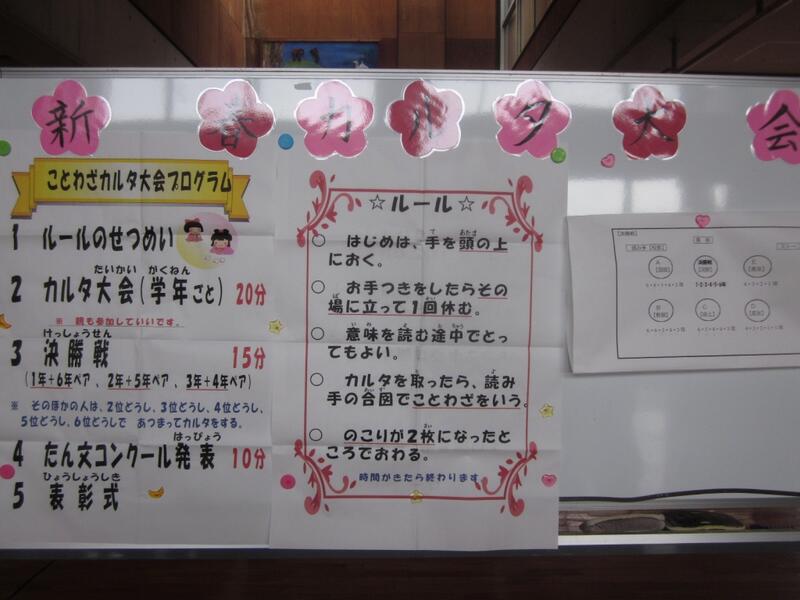 新春カルタ大会
ことわざカルタ大会プログラム
1 ルールのせつめい
2 カルタ大会(学年ごと) 20分
たいかい がくねん
※ 親も参加していいです。
3 決勝戦 15分
けっしょうせん
(1年+6年ペア、2年+5年ペア、3年+4年ペア)
※ そのほかの人は、2位どうし、3位どうし、4位どうし、
5位どうし、6位どうしで あつまってカルタをする。
4 たん文コンクール発表 10分
はっぴょう
5 表彰式
ひょうしょうしき
☆ルール☆
○ はじめは、手を頭の上
て あたま
におく。
○ お手つきをしたらその
場に立って1回休む。
ば
○ 意味を読む途中でとっ
いみ よ とちゅう
てもよい。
○ カルタを取ったら、読み
手の合図でことわざをいう。
○ のこりが2枚になったと
まい
ころでおわる。
時間がきたら終わります